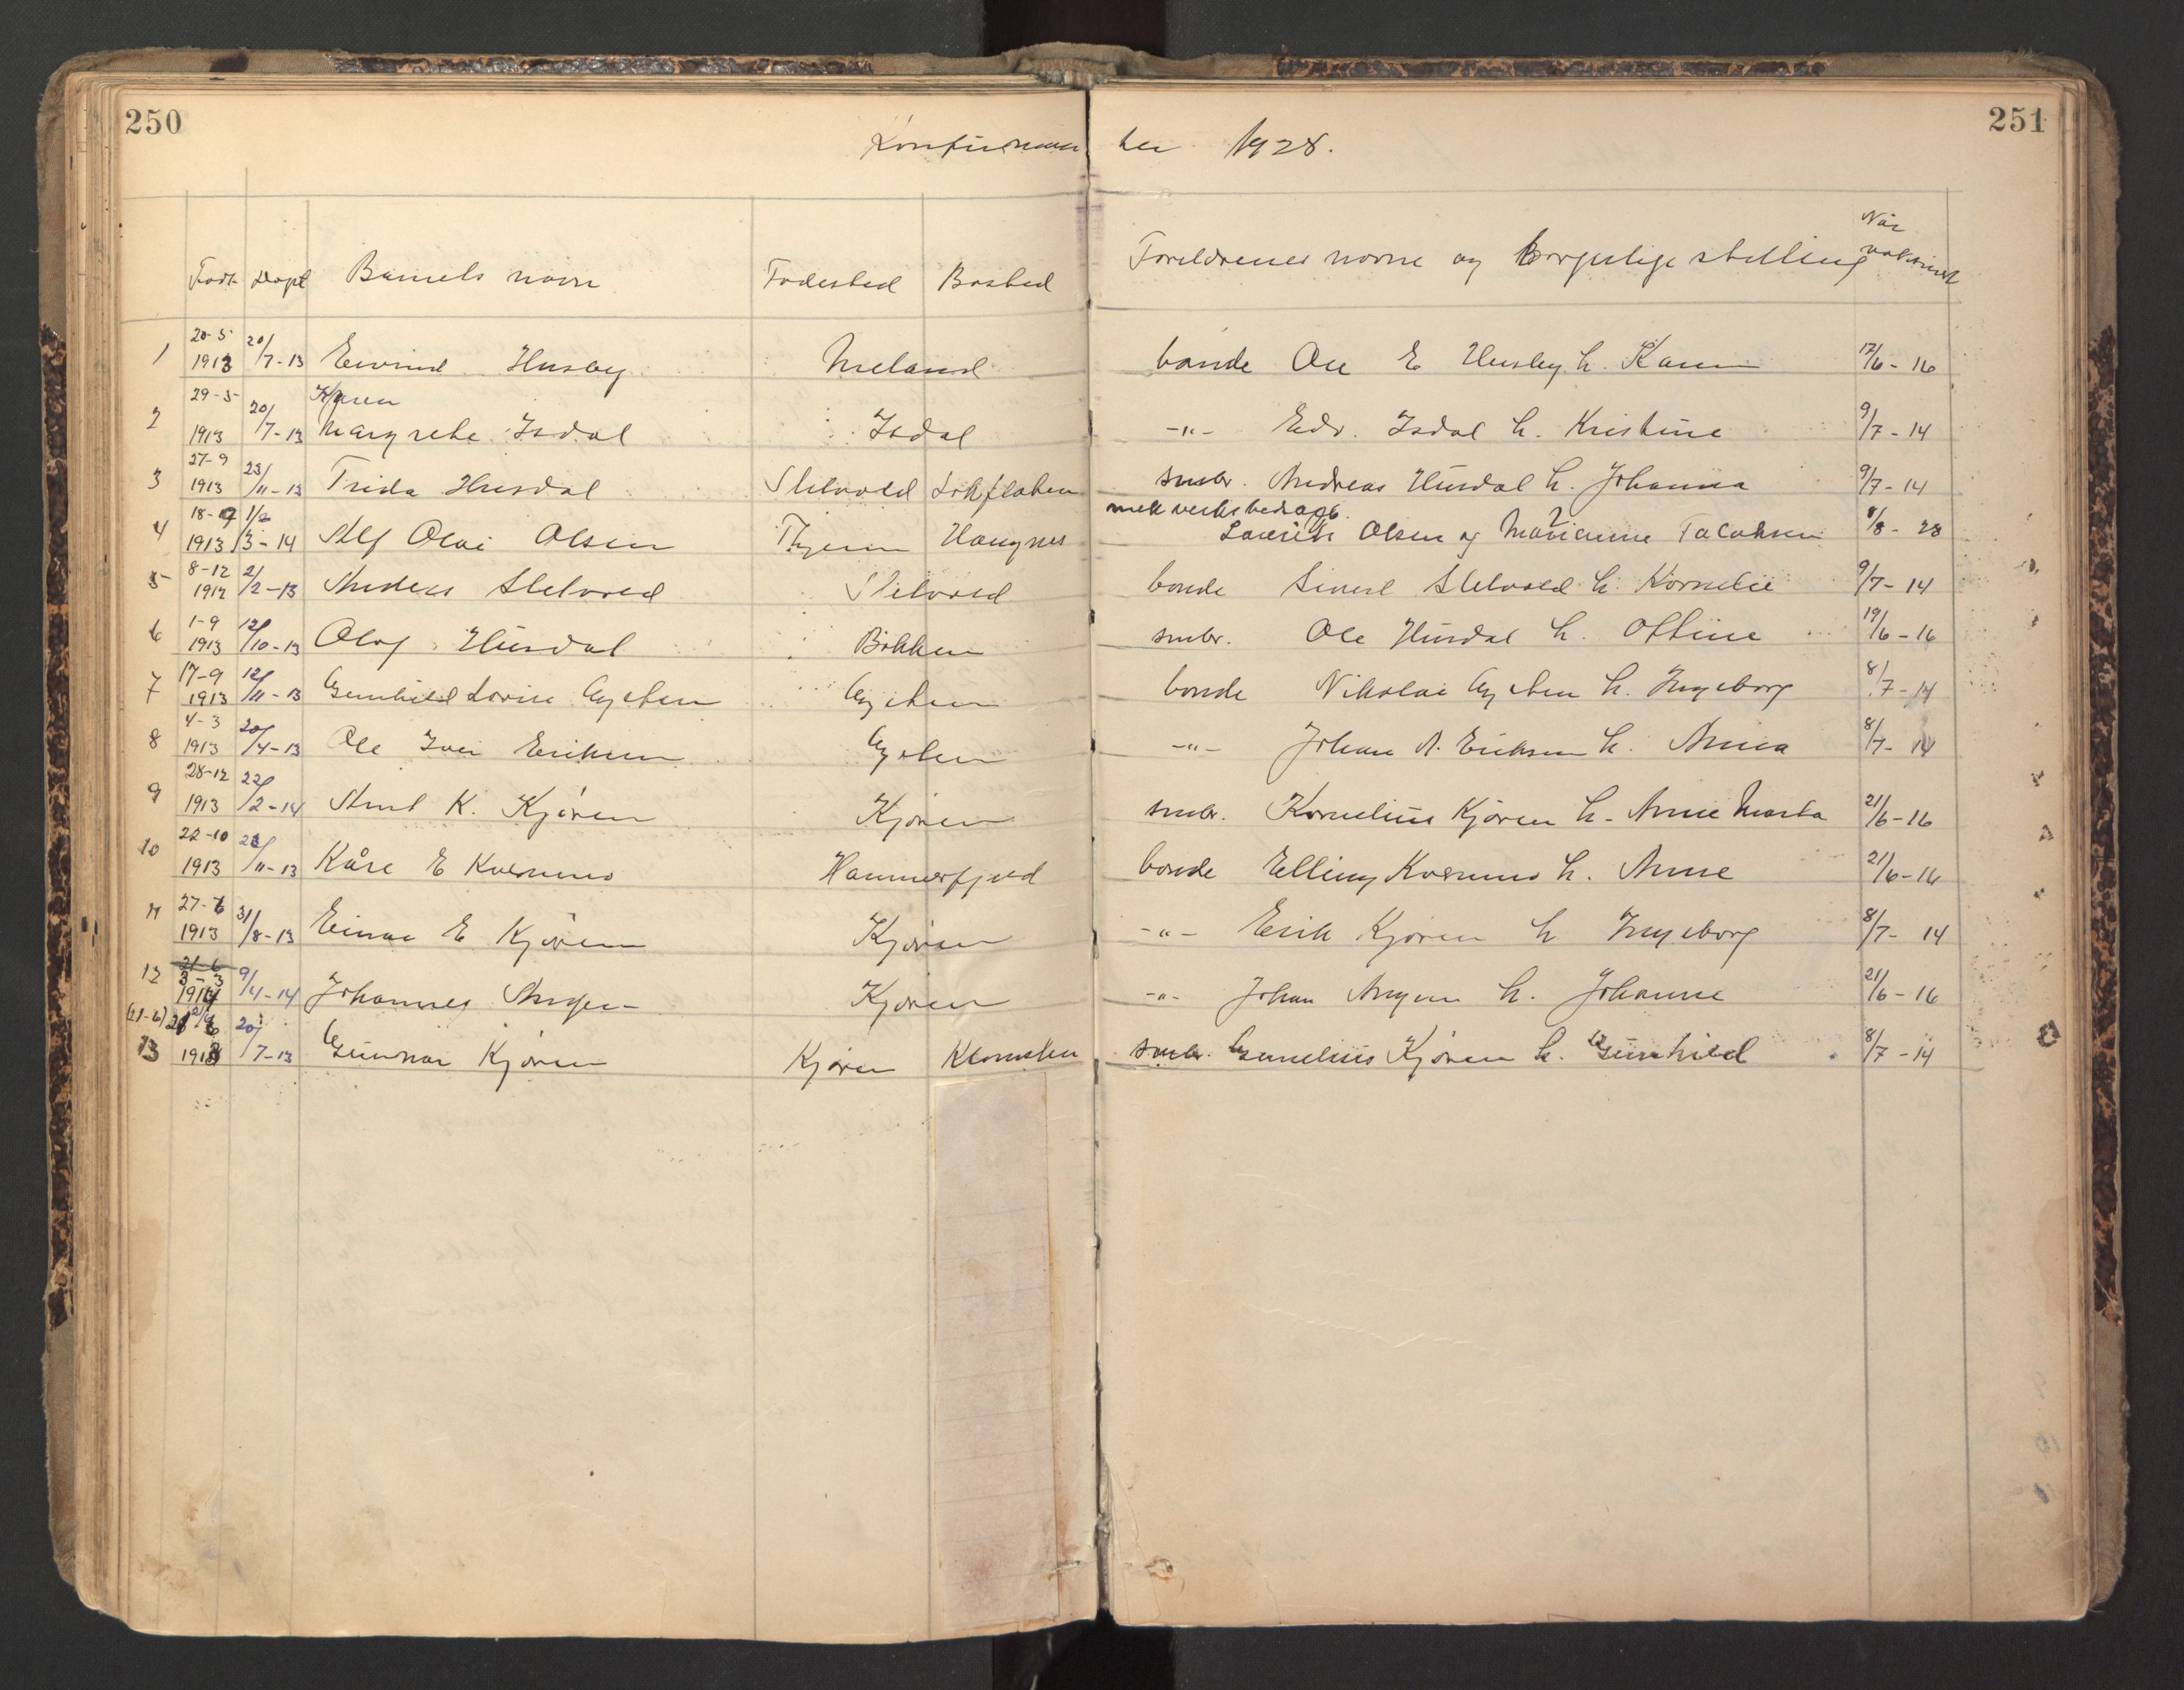 250
251
Konfirmanter 1928.
Født Døpt Barnets navn Fødested Bosted Foreldrenes navne og borgerlige stilling Når vaksinert
1 20-5 1913 20/7-13 Eivind Husby Meland bonde Ole E Husby h. Karen 17/6-16
2 29-5 1913 20/7-13 Karen Margrethe Isdal Isdal -"- Edv. Isdal h. Kristine 9/7-14
3 27-9 1913 23/11-13 Frida Husdal Sletvold smbr. Andreas Husdal h. Johanna 9/7-14
4 1913 /3-14 Alf Olai Olsen Haugnes mek verksbedr. Olsen og Marianne Jacobsen 8/8-28
5 8-12 1912 2/2-13 Anders Sletvold Sletvold bonde Sivert Sletvold h. Kornelie 9/7-14
6 1-9 1913 12/10-13 Olaf Husdal Bakken smbr. Ole Husdal h. Ottine 19/6-16
7 17-9 1913 12/11-13 Gunhild Lovise bonde Nikolai h. Ingeborg 8/7-14
8 4-3 1913 20/4-13 Ole Iver Eriksen -"- Johan A. Eriksen h. Anna 8/7-14
9 28-12 1913 22/2-14 Arnt K. Kjøren Kjøren smbr. Kornelius Kjøren h. Anne Marta 21/6-16
10 22-10 1913 23/11-13 Kåre E Kvernmo Hammerfjeld bonde Elling Kvernmo h. Anne 21/6-16
11 27-6 1913 31/8-13 Einar E Kjøren Kjøren -"- Erik Kjøren h Ingeborg 8/7-14
12 3-3 1914 9/4-14 Johannes Angen Kjøren -"- Johan Angen h. Johanne 21/6-16
(21-6)
13 1913 20/7-13 Gunnar Kjøren Kjøren smbr. Gunelius Kjøren h. Gunhild 8/7-14